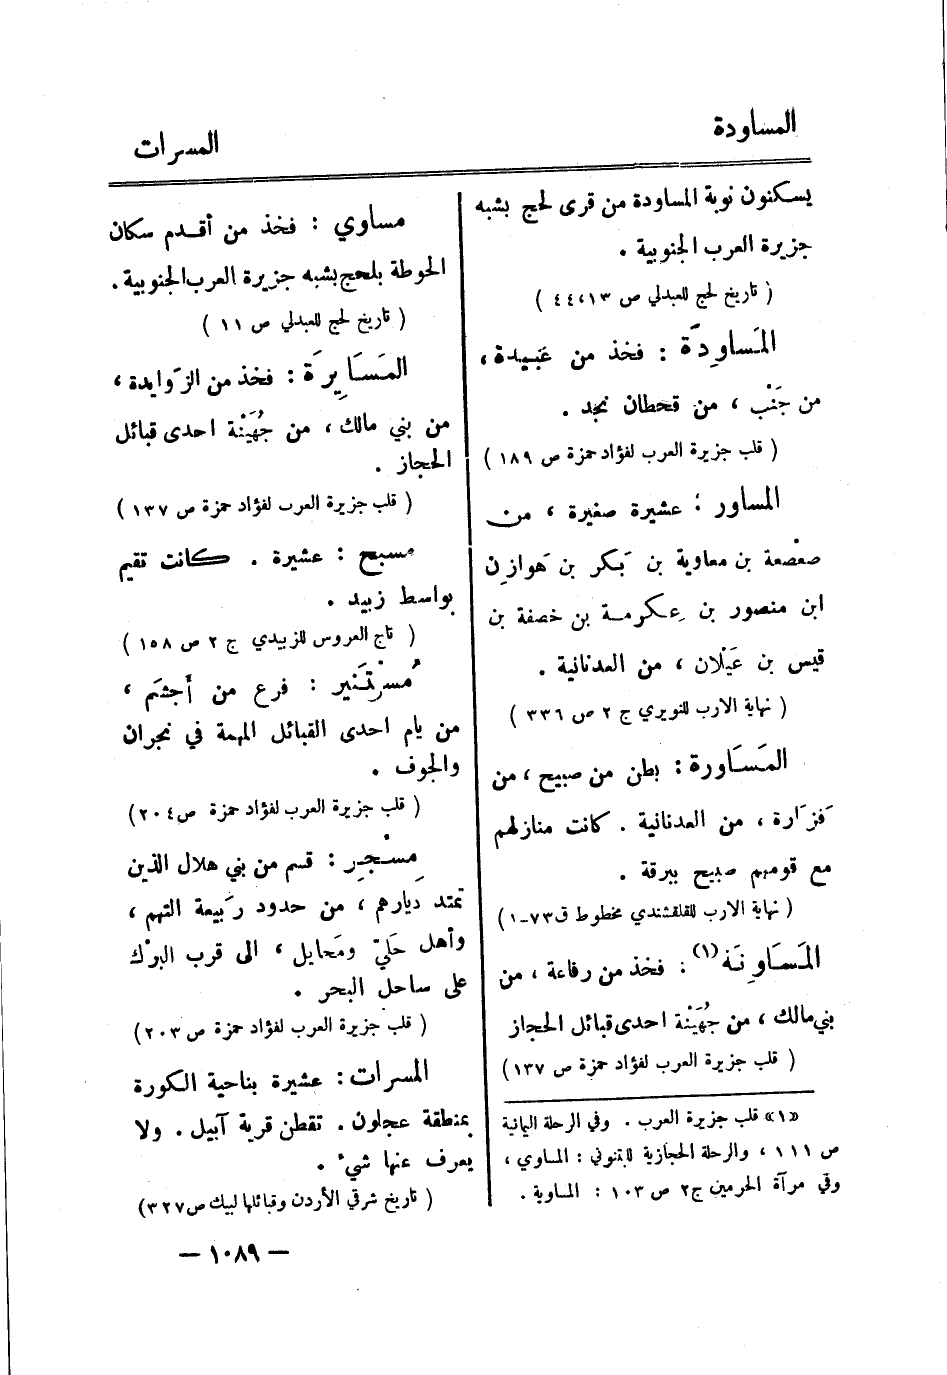 المساودة
المسرات
يسكنون نوبة المساودة من قرى لحج بشبه
جزيرة العرب الجنوبية .
( تاريخ لحج للعبدلي ص ١٣،٤٤ )
المَساوِدَّة : فخذ من عَبيدة ،
من جَنْب ، من قحطان نجد .
( قلب جزيرة العرب لفؤاد حمزة ص ١٨٩ )
المساور : عشيرة صغيرة ، من
صعْصعة بن معاوية بن بَكر بن هَوازِن
ابن منصور بن عِكرمة بن خصفة بن
قيس بن عَيْلان ، من العدنانية .
( نهاية الارب للنويري ج ٢ ص ٣٣٦ )
المَسَاورة : بطن من صبيح ، من
فَزَارة ، من العدنانية . كانت منازلهم
مع قومهم صبيح ببرقة .
( نهاية الارب للقلقشندي مخطوط ق ٧٣-١ )
المَسَاوِنَة (١) : فخذ من رفاعة ، من
بني مالك ، من جُهَيْنة احدى قبائل الحجاز
( قلب جزيرة العرب لفؤاد حمزة ص ١٣٧ )
«١» قلب جزيرة العرب . وفي الرحلة اليمانية
ص ١١١ ، والرحلة الحجازية للبتنوني : المساوي ،
وفي مرآة الحرمين ج٢ ص ١٠٣ : المساوية .
مساوي : فخذ من أقدم سكان
الحوطة بلحج بشبه جزيرة العرب الجنوبية .
( تاريخ لحج للعبدلي ص ١١ )
المَسَايِرَة : فخذ من الزّوايدة ،
من بني مالك ، من جُهَيْنة احدى قبائل
الحجاز .
( قلب جزيرة العرب لفؤاد حمزة ص ١٣٧ )
مسبح : عشيرة . كانت تقيم
بواسط زبيد .
( تاج العروس للزبيدي ج ٢ ص ١٥٨ )
مُسْرتَنير : فرع من أَجثَم ،
من يام احدى القبائل المهمة في نجران
والجوف .
( قلب جزيرة العرب لفؤاد حمزة ص ٢٠٤ )
مِسْجِر : قسم من بني هلال الذين
تمتد ديارهم ، من حدود رَبيعة التهم ،
وأهل حَليّ ومَحايل ، الى قرب البرْك
على ساحل البحر .
( قلب جزيرة العرب لفؤاد حمزة ص ٢٠٣ )
المسرات : عشيرة بناحية الكورة
بمنطقة عجلون . تقطن قرية آبيل . ولا
يعرف عنها شيء .
( تاريخ شرقي الأردن وقبائلها لبيك ص ٣٢٧ )
— ١٠٨٩ —